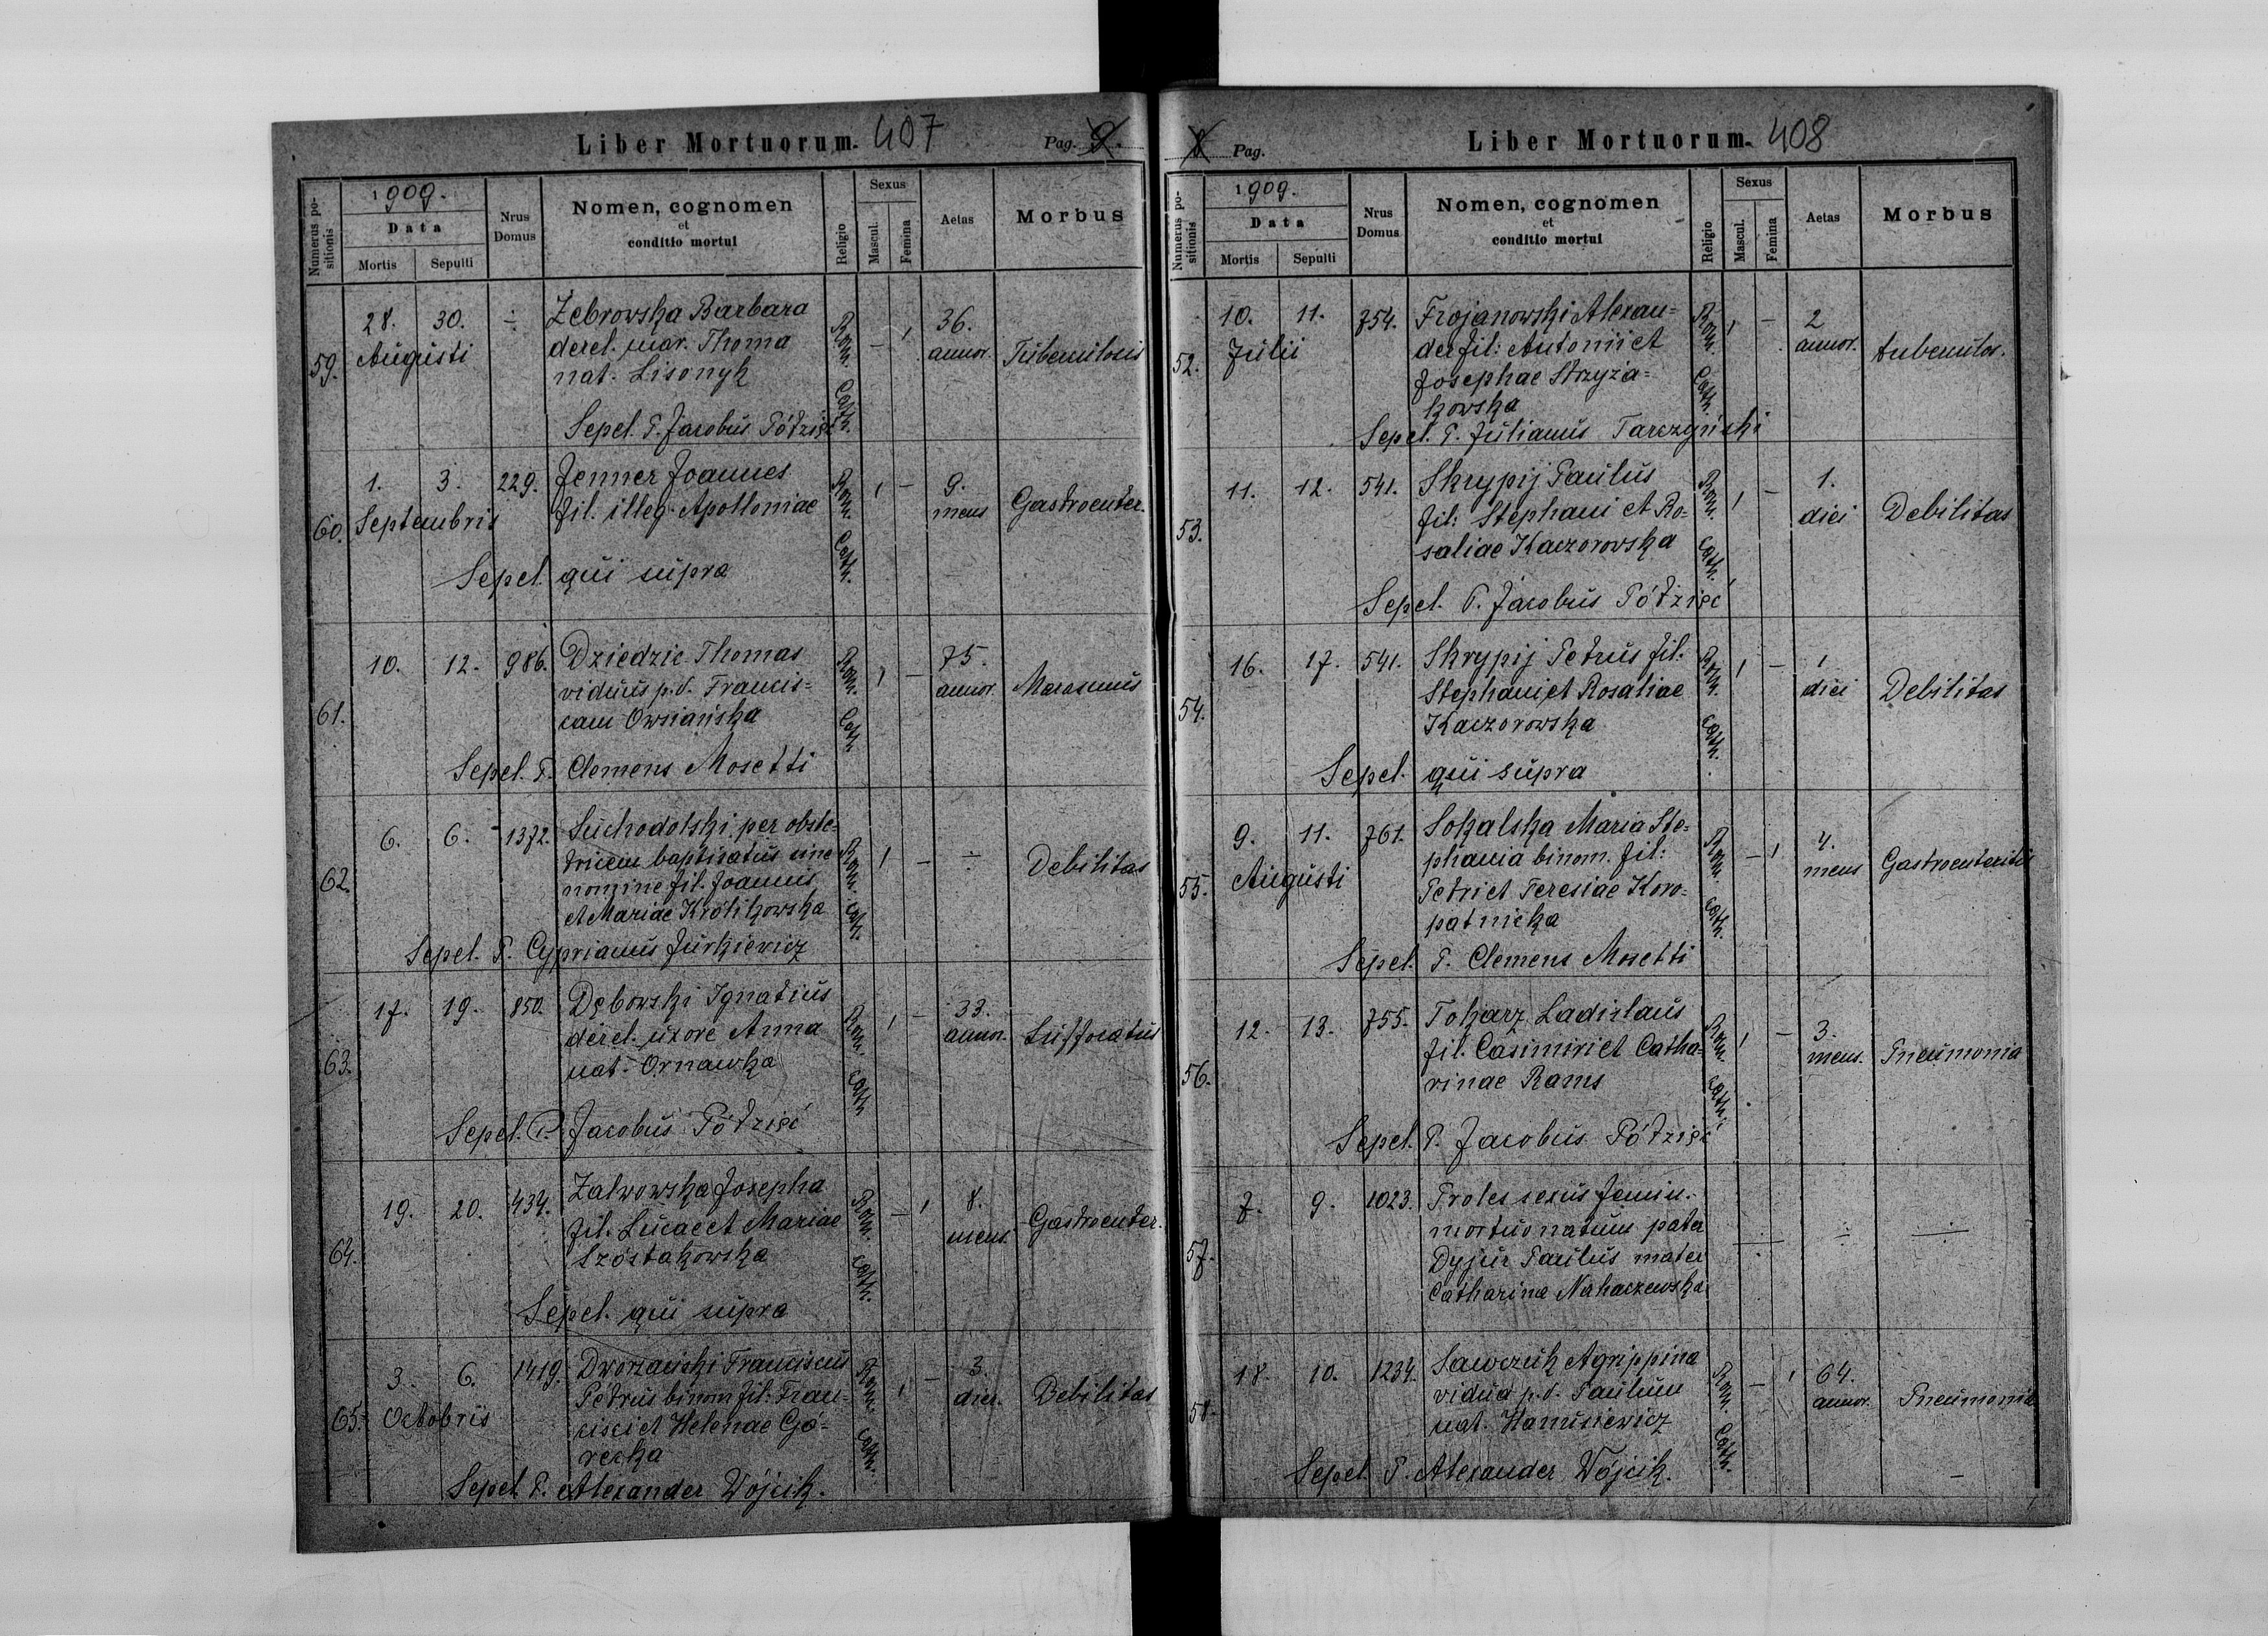 Liber Mortuorum. 407
Pag. 9.
Numerus positionis
1909.
Data
Mortis
Sepulti
Nrus Domus
Nomen, cognomen
et
conditio mortui
Religio
Sexus
Mascul.
Femina
Aetas
Morbus
59.
28. 30. Augusti
÷
Żebrowska Barbara
derel. mar. Thoma
nat. Lisonyk
Rom. Cath.
– 1
36. annor.
Tuberculosis
Sepel. P. Jacobus Półzięć
60.
1. 3. Septembris
229.
Jenner Joannes
fil. illeg. Apolloniae
Rom. Cath.
1 –
9. mens
Gastroenter.
Sepel. qui supra
61.
10. 12.
986.
Dziedzic Thomas
viduus p. d. Francis=
cam Owsiańska
Rom. Cath.
1 –
75. annor.
Marasmus
Sepel. P. Clemens Mosetti
62.
6. 6.
1372.
Suchodolski per obste=
tricem baptisatus sine
nomine fil. Joannis
et Mariae Królikowska
Rom. Cath.
1 –
÷
Debilitas
Sepel. P. Cyprianus Jurkiewicz
63.
17. 19.
850.
Dębowski Ignatius
derel. uxore Anna
nat. Ornawka
Rom. Cath.
1 –
33. annor.
Suffocatus
Sepel. P. Jacobus Półzięć
64.
19. 20.
434.
Zalwowska Josepha
fil. Lucae et Mariae
Szóstakowska
Rom. Cath.
– 1
8. mens.
Gastroenter.
Sepel. qui supra
65.
3. 6. Octobris
1419.
Dworzański Franciscus
Petrus binom. fil: Fran=
cisci et Helenae Gó=
recka
Rom. Cath.
1 –
3. dier.
Debilitas
Sepel. P. Alexander Wójcik.
8 Pag.
Liber Mortuorum. 408
Numerus positionis
1909.
Data
Mortis
Sepulti
Nrus Domus
Nomen, cognomen
et
conditio mortui
Religio
Sexus
Mascul.
Femina
Aetas
Morbus
52.
10. 11. Julii
754.
Trojanowski Alexan=
der fil: Antonii et
Josephae Strzyża=
kowska
Rom. Cath.
1 –
2 annor.
tuberculos.
Sepel. P. Julianus Tarczyński
53.
11. 12.
541.
Skrypij Paulus
fil: Stephani et Ro=
saliae Kaczorowska
Rom. Cath.
1 –
1. diei
Debilitas
Sepel. P. Jacobus Półzięć
54.
16. 17.
541.
Skrypij Petrus fil.
Stephani et Rosaliae
Kaczorowska
Rom. Cath.
1 –
1 diei
Debilitas
Sepel. qui supra
55.
9. 11. Augusti
761.
Sokalska Maria Ste=
phania binom. fil:
Petri et Teresiae Koro=
patnicka
Rom. Cath.
– 1
4. mens
Gastroenteritis
Sepel. P. Clemens Mosetti
56.
12. 13.
755.
Tokarz Ladislaus
fil. Casimiri et Catha=
rinae Rams
Rom. Cath.
1 –
3. mens.
Pneumonia
Sepel. P. Jacobus Półzięć
57.
7. 9.
1023.
Proles sexus femin.
mortuo natum pater
Dyjur Paulus mater
Catharina Nahaczewska
÷ ÷ ÷
58.
18. 10.
1234.
Sawczuk Agrippina
vidua p. d. Paulum
nat. Hanusiewicz
Rom. Cath.
– 1
64. annor.
Pneumonia
Sepel. P. Alexander Wójcik.